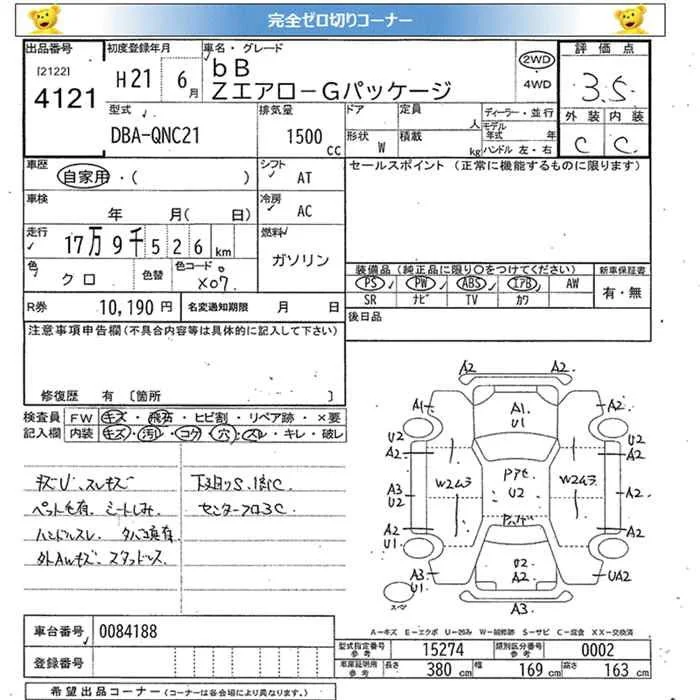 完全ゼロ切りコーナー
出品番号
[2122]
4121
初度登録年月
H21 6月
車名・グレード
bB
ZエアローGパッケージ
2WD
4WD
評価点
3.5
外装 内装
C C
型式
DBA-QNC21
排気量
1500
CC
ドア
定員
人
ディーラー・並行
モデル年式 年
形状
W
積載
kg
ハンドル 左・右
車歴
自家用・( )
シフト
AT
セールスポイント (正常に機能するものに限ります)
車検
年 月( 日)
冷房
AC
走行
17万9千526km
燃料
ガソリン
色
クロ
色替
色コードNo.
X07
装備品 (純正品に限り〇をつけてください)
PS PW ABS エアB AW
SR ナビ TV カワ
新車保証書
有・無
R券
10,190 円
名変通知期限 月 日
後日品
注意事項申告欄(不具合内容等は具体的に記入して下さい)
修復歴 有〔箇所 〕
検査員
記入欄
FW キズ・飛石・ヒビ割・リペア跡・×要
内装 キズ・汚レ・コゲ・穴・スレ・キレ・破レ
キズU、スレキズ
下廻りS、錆C
ペット毛有 シートしみ
センターフロアC
ハンドルスレ タバコ臭有
外AWキズ、スタッドレス
A2 A2
A1 A1 A2
U1
U2 U2
A2 A2
W2ムラ Pアセ W2ムラ
U2
A3 A2
U2
A2 A2
U1
A3 U2 UA2
U1 A2
A3
スペア
A-キズ E-エクボ U-凹み W-補修跡 S-サビ C-腐食 XX-交換済
車台番号
0084188
登録番号
型式指定番号
参考
15274
類別区分番号
参考
0002
車庫証明用
参考
長さ 380 cm 幅 169 cm 高さ 163 cm
希望出品コーナー (コーナーは各会場により異なります。)